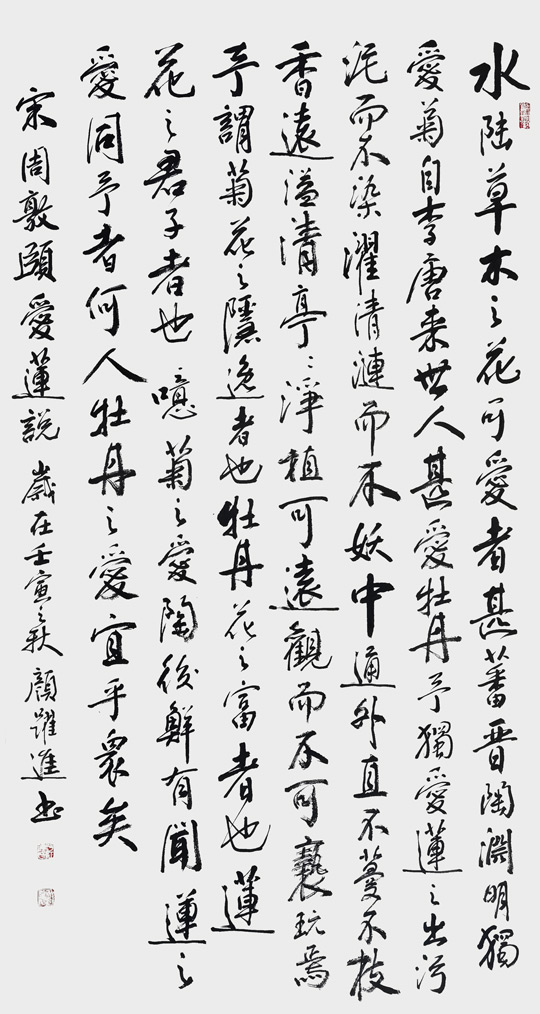 水陸草木之花可愛者甚蕃晋陶淵明獨
愛菊自李唐来世人甚愛牡丹予獨愛蓮之出污
泥而不染濯清漣而不妖中通外直不蔓不枝
香遠溢清亭〻淨植可遠觀而不可褻玩焉
予謂菊花之隱逸者也牡丹花之富者也蓮
花之君子者也噫菊之愛陶後鮮有聞蓮之
愛同予者何人牡丹之愛宜乎衆矣
宋周敦頤愛蓮說 歲在壬寅之秋 顏躍進书